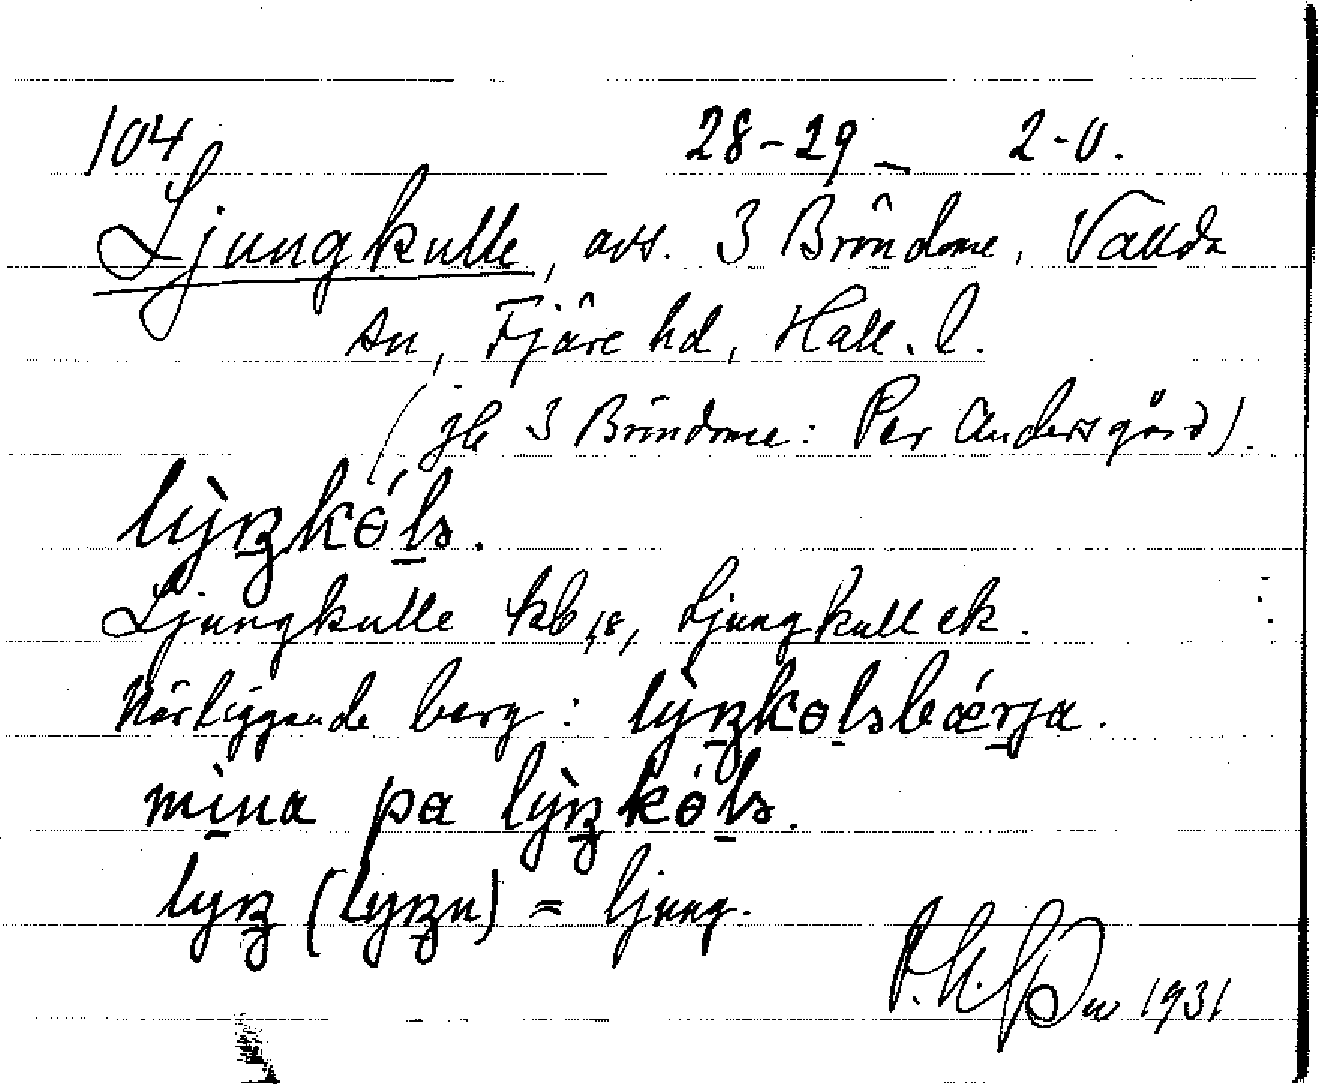 104 28-29 2-0.
Ljungkulle, avs. 3 Bröndome, Vallda
sn, Fjäre hd, Hall. l.
(gh 3 Bröndome: Per Andersgård).
lỳŋkɵ́ls.
Ljungkulle kb, Ljungkull ek.
Närliggande berg: lỳŋkɵlsbǽrja.
mìna pa lỳŋkɵ́ls.
lyŋ (lyŋn) = ljung.
1931